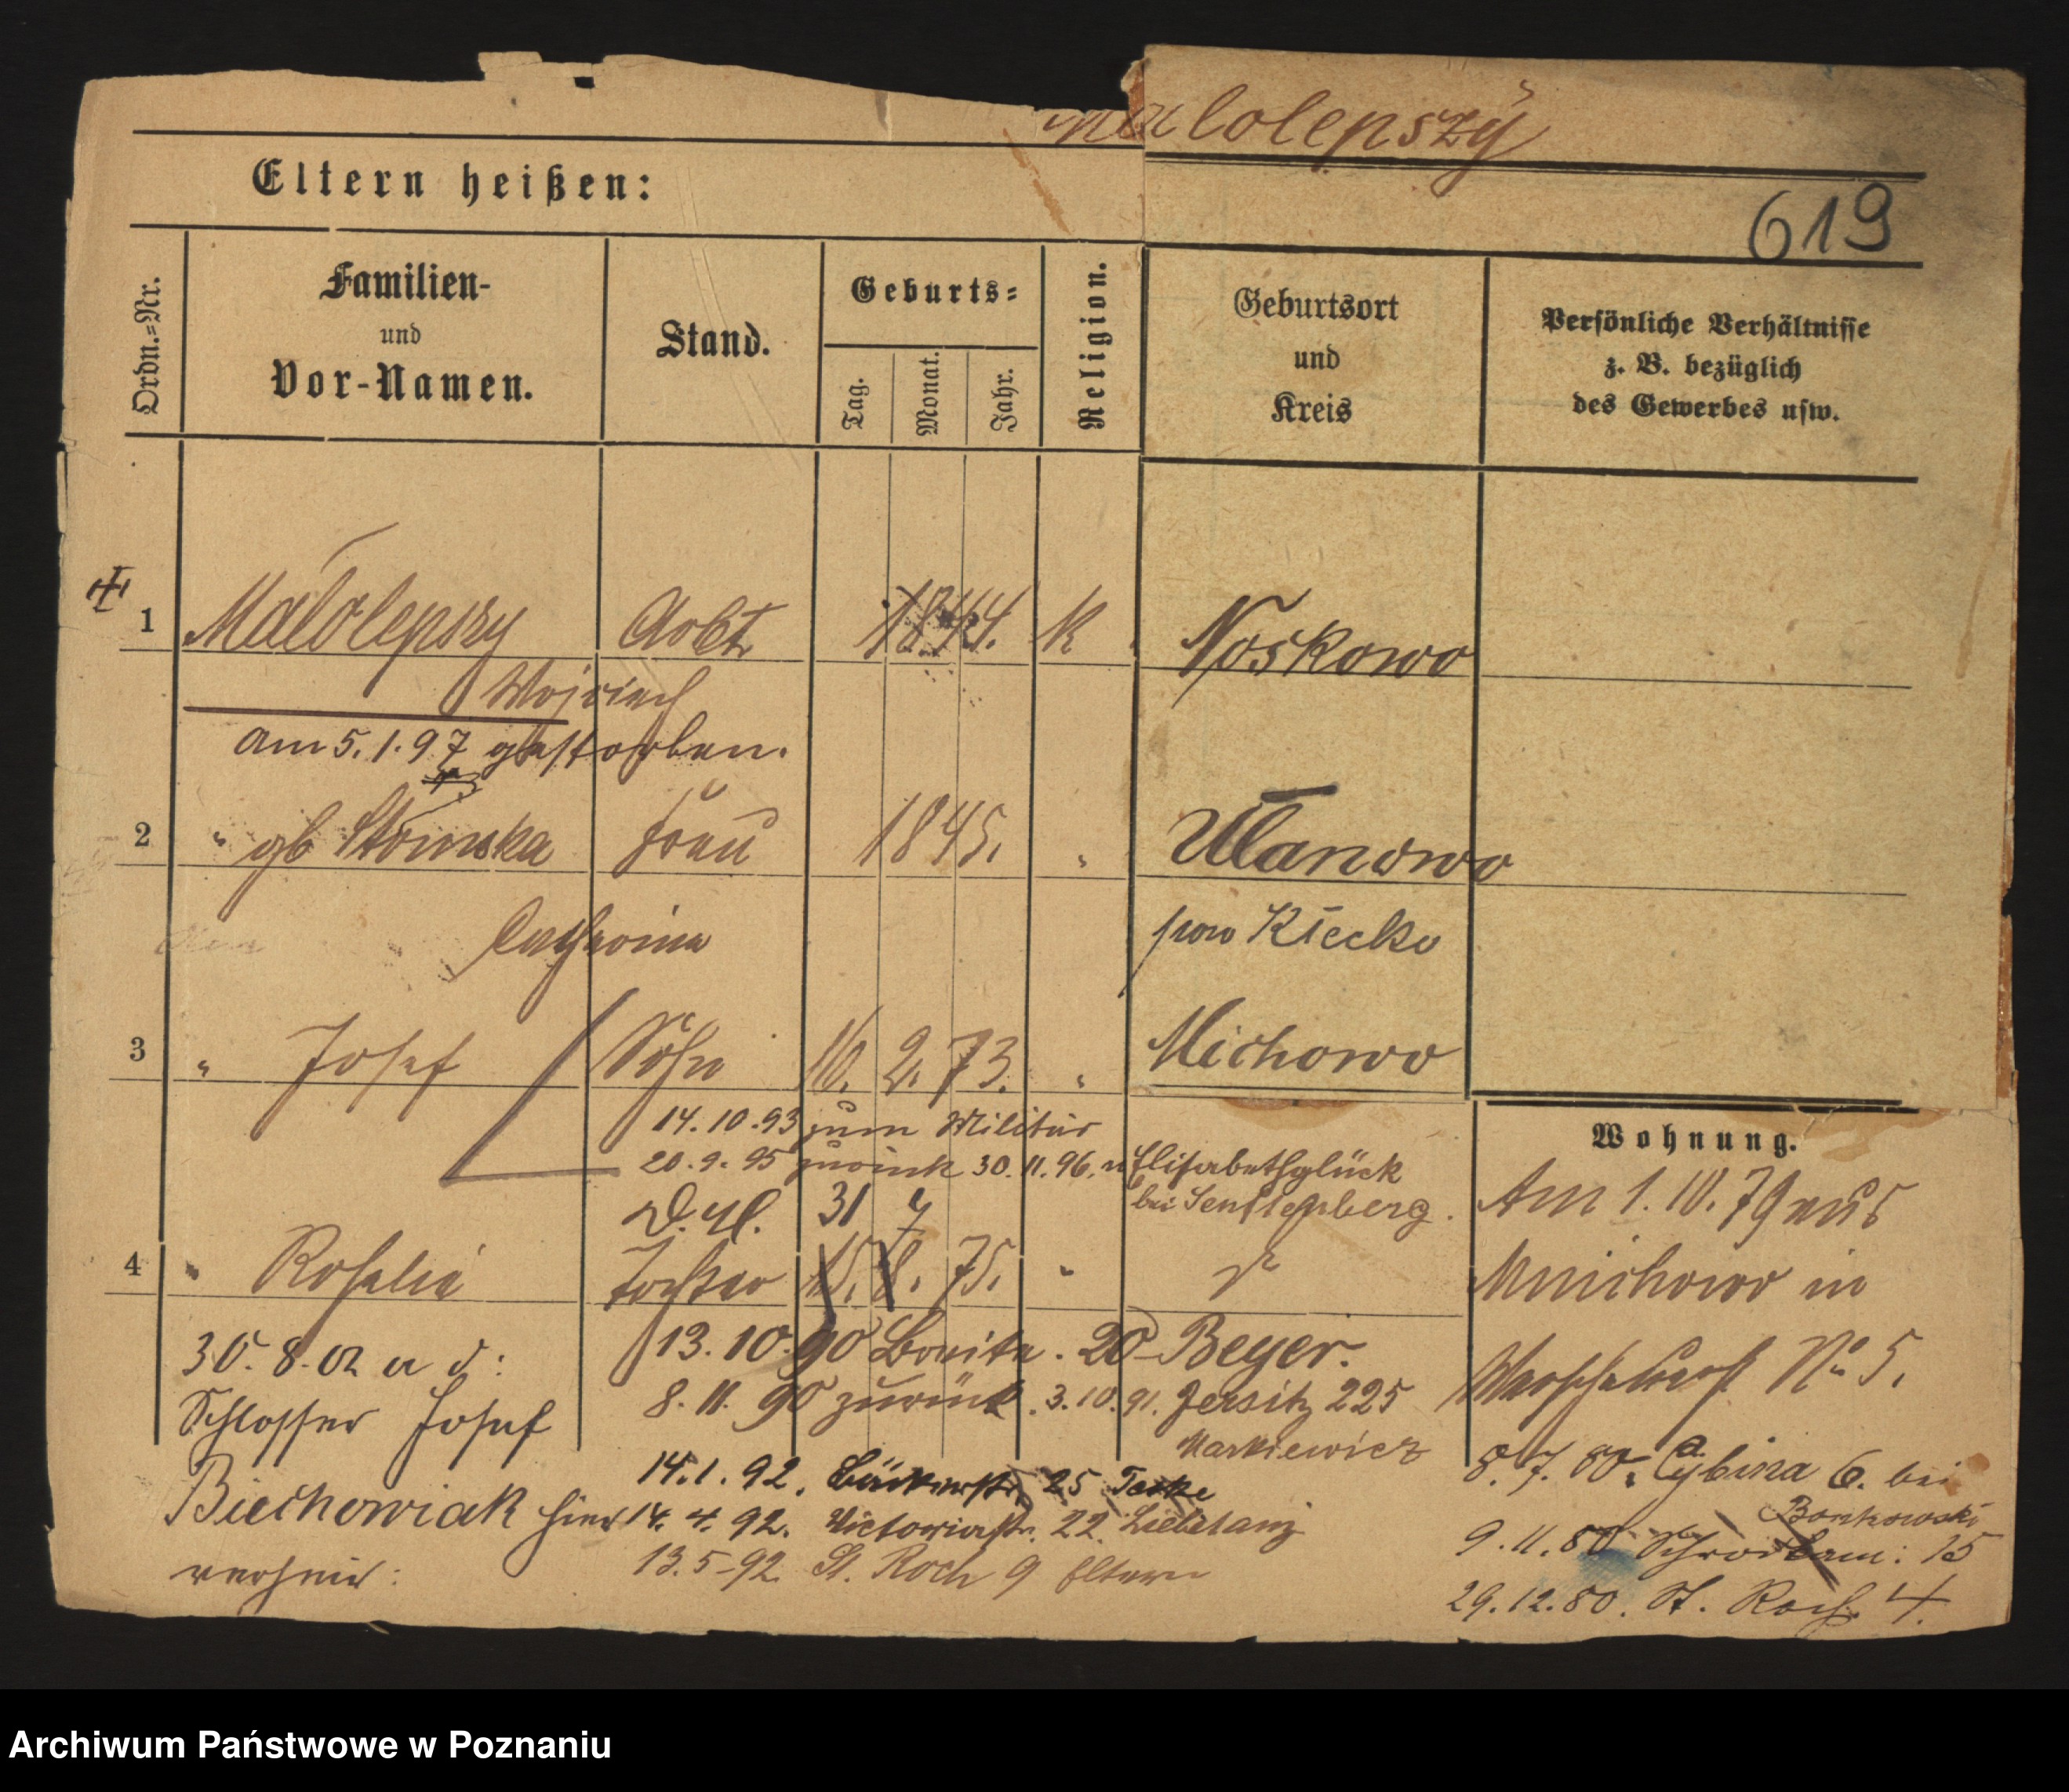 Malolepszy
Eltern heißen:
619
Ordn.=Nr.
Familien-
und
Vor-Namen.
Stand.
Geburts=
Tag.
Monat.
Jahr.
Religion.
Geburtsort
und
Kreis
Persönliche Verhältnisse
z. B. bezüglich
des Gewerbes usw.
1 Małolepszy Arbtr 1844. K Noskowo
Wojciech
am 5.1.97 gestorben.
2 " gb Słomska Frau 1845. " Ułanowo
Catharina pow Kłecko
3 " Josef Sohn 16. 2. 73. " Michowo
14.10.93 zum Militär
20.9.95 zurück 30.11.96. n Elisabethglück
bei Senftenberg.
31 7
4 " Rosalia Tochter 15. 8. 75. "
13.10.90 Breite. 20 Beyer.
8.11.90 zurück. 3.10.91. Jersitz 225
Markiewicz
14.1.92. Bäckerstr. 25 Taske
14.4.92. Victoriastr. 22.
13.5-92 St. Roch 9 Eltern
30.8.02 a d:
Schlosser Josef
Biechowiak hier
verheir:
Wohnung.
Am 1.10.79 aus
Mnichowo in
No 5.
8.7.80. Cybina 6. bei
Bonkowski
9.11.80 Schrodkam: 15
29.12.80. St. Roch. 4.
Archiwum Państwowe w Poznaniu